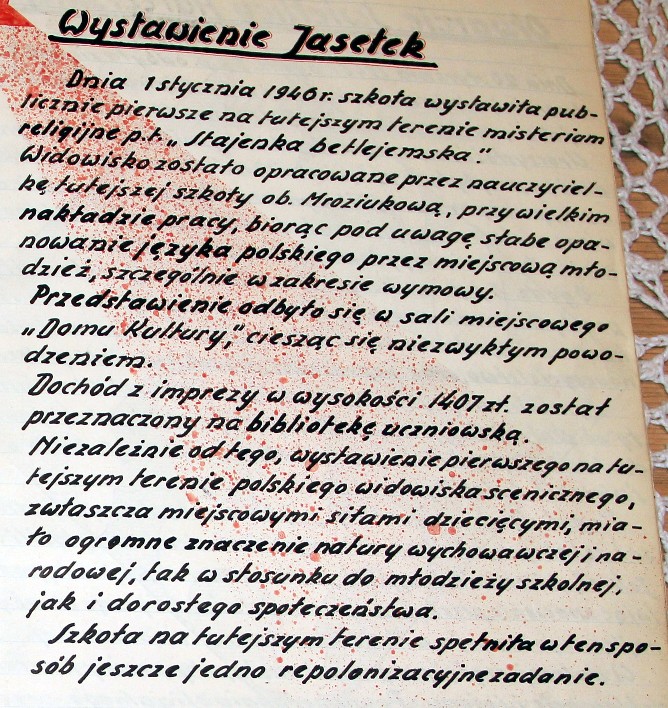 Wystawienie Jasełek
Dnia 1 stycznia 1946 r. szkoła wystawiła pub-
licznie pierwsze na tutejszym terenie misterium
religijne p.t. „Stajenka betlejemska."
Widowisko zostało opracowane przez nauczyciel-
kę tutejszej szkoły ob. Mroziukową, przy wielkim
nakładzie pracy, biorąc pod uwagę słabe opa-
nowanie języka polskiego przez miejscową mło-
dzież, szczególnie w zakresie wymowy.
Przedstawienie odbyło się w sali miejscowego
„Domu Kultury," ciesząc się niezwykłym powo-
dzeniem.
Dochód z imprezy w wysokości 1407 zł. został
przeznaczony na bibliotekę uczniowską.
Niezależnie od tego, wystawienie pierwszego na tu-
tejszym terenie polskiego widowiska scenicznego,
zwłaszcza miejscowymi siłami dziecięcymi, mia-
ło ogromne znaczenie natury wychowawczej i na-
rodowej, tak w stosunku do młodzieży szkolnej,
jak i dorosłego społeczeństwa.
Szkoła na tutejszym terenie spełniła w ten spo-
sób jeszcze jedno repolonizacyjne zadanie.